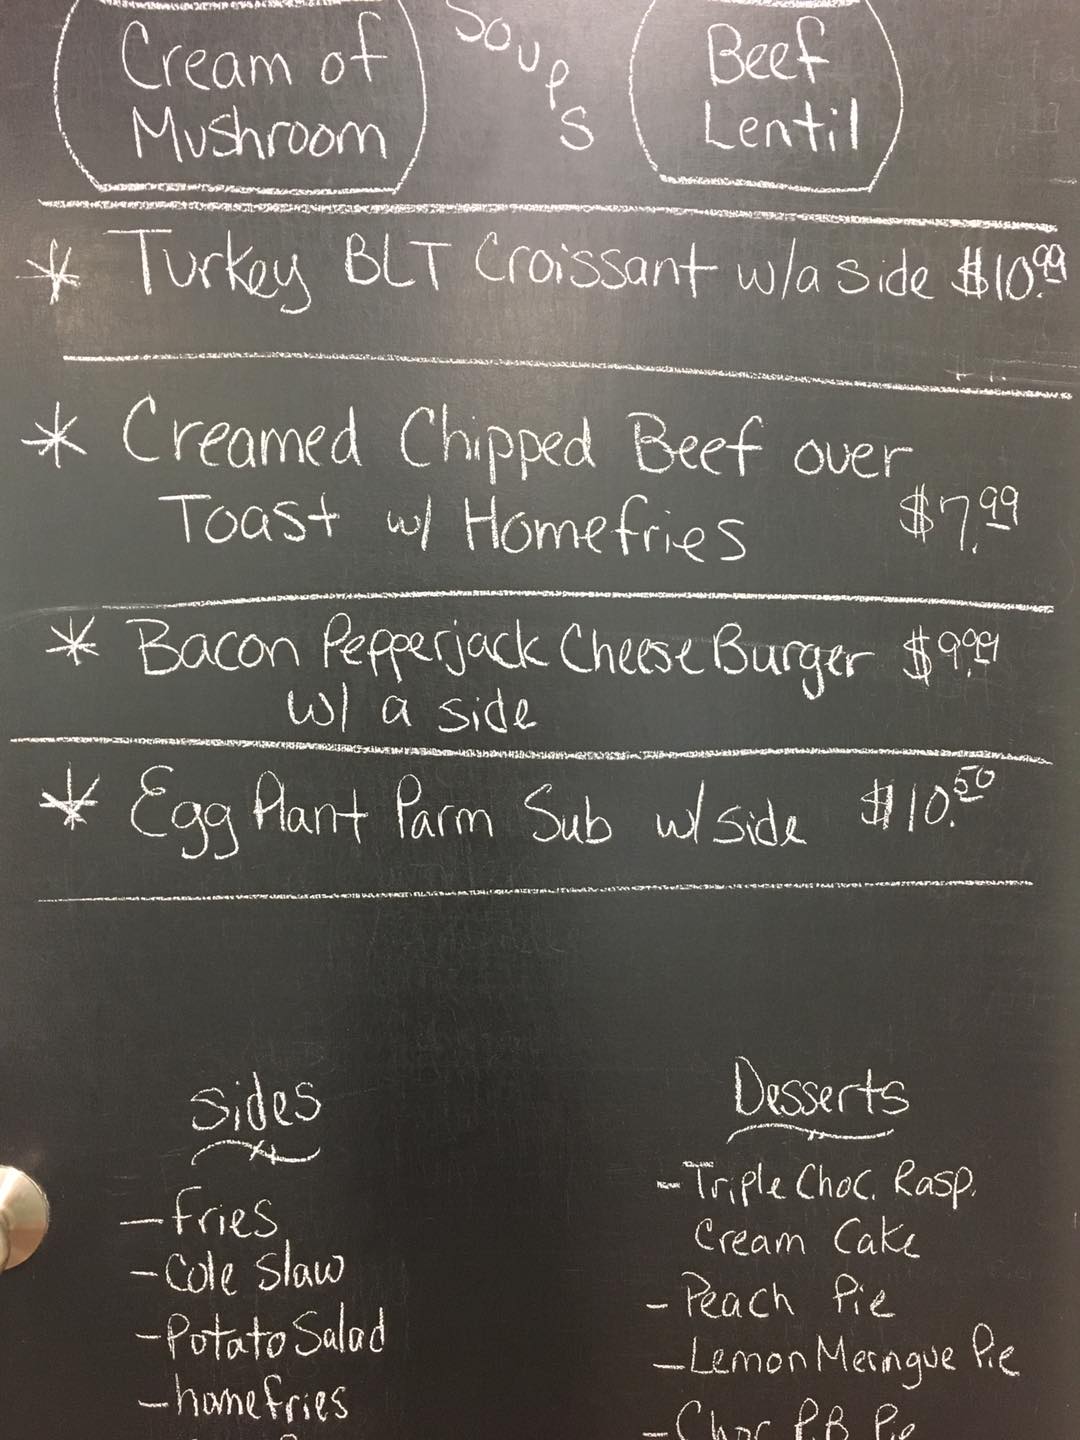 Cream of
Mushroom
Soups
Beef
Lentil
* Turkey BLT Croissant w/a side $10.99
* Creamed Chipped Beef over
Toast w/ Homefries $7.99
* Bacon Pepperjack Cheese Burger $9.99
w/ a side
* Egg Plant Parm Sub w/ side $10.50
Sides
- Fries
- Cole Slaw
- Potato Salad
- homefries
Desserts
- Triple Choc. Rasp.
Cream Cake
- Peach Pie
- Lemon Meringue Pie
- Choc P.B. Pie